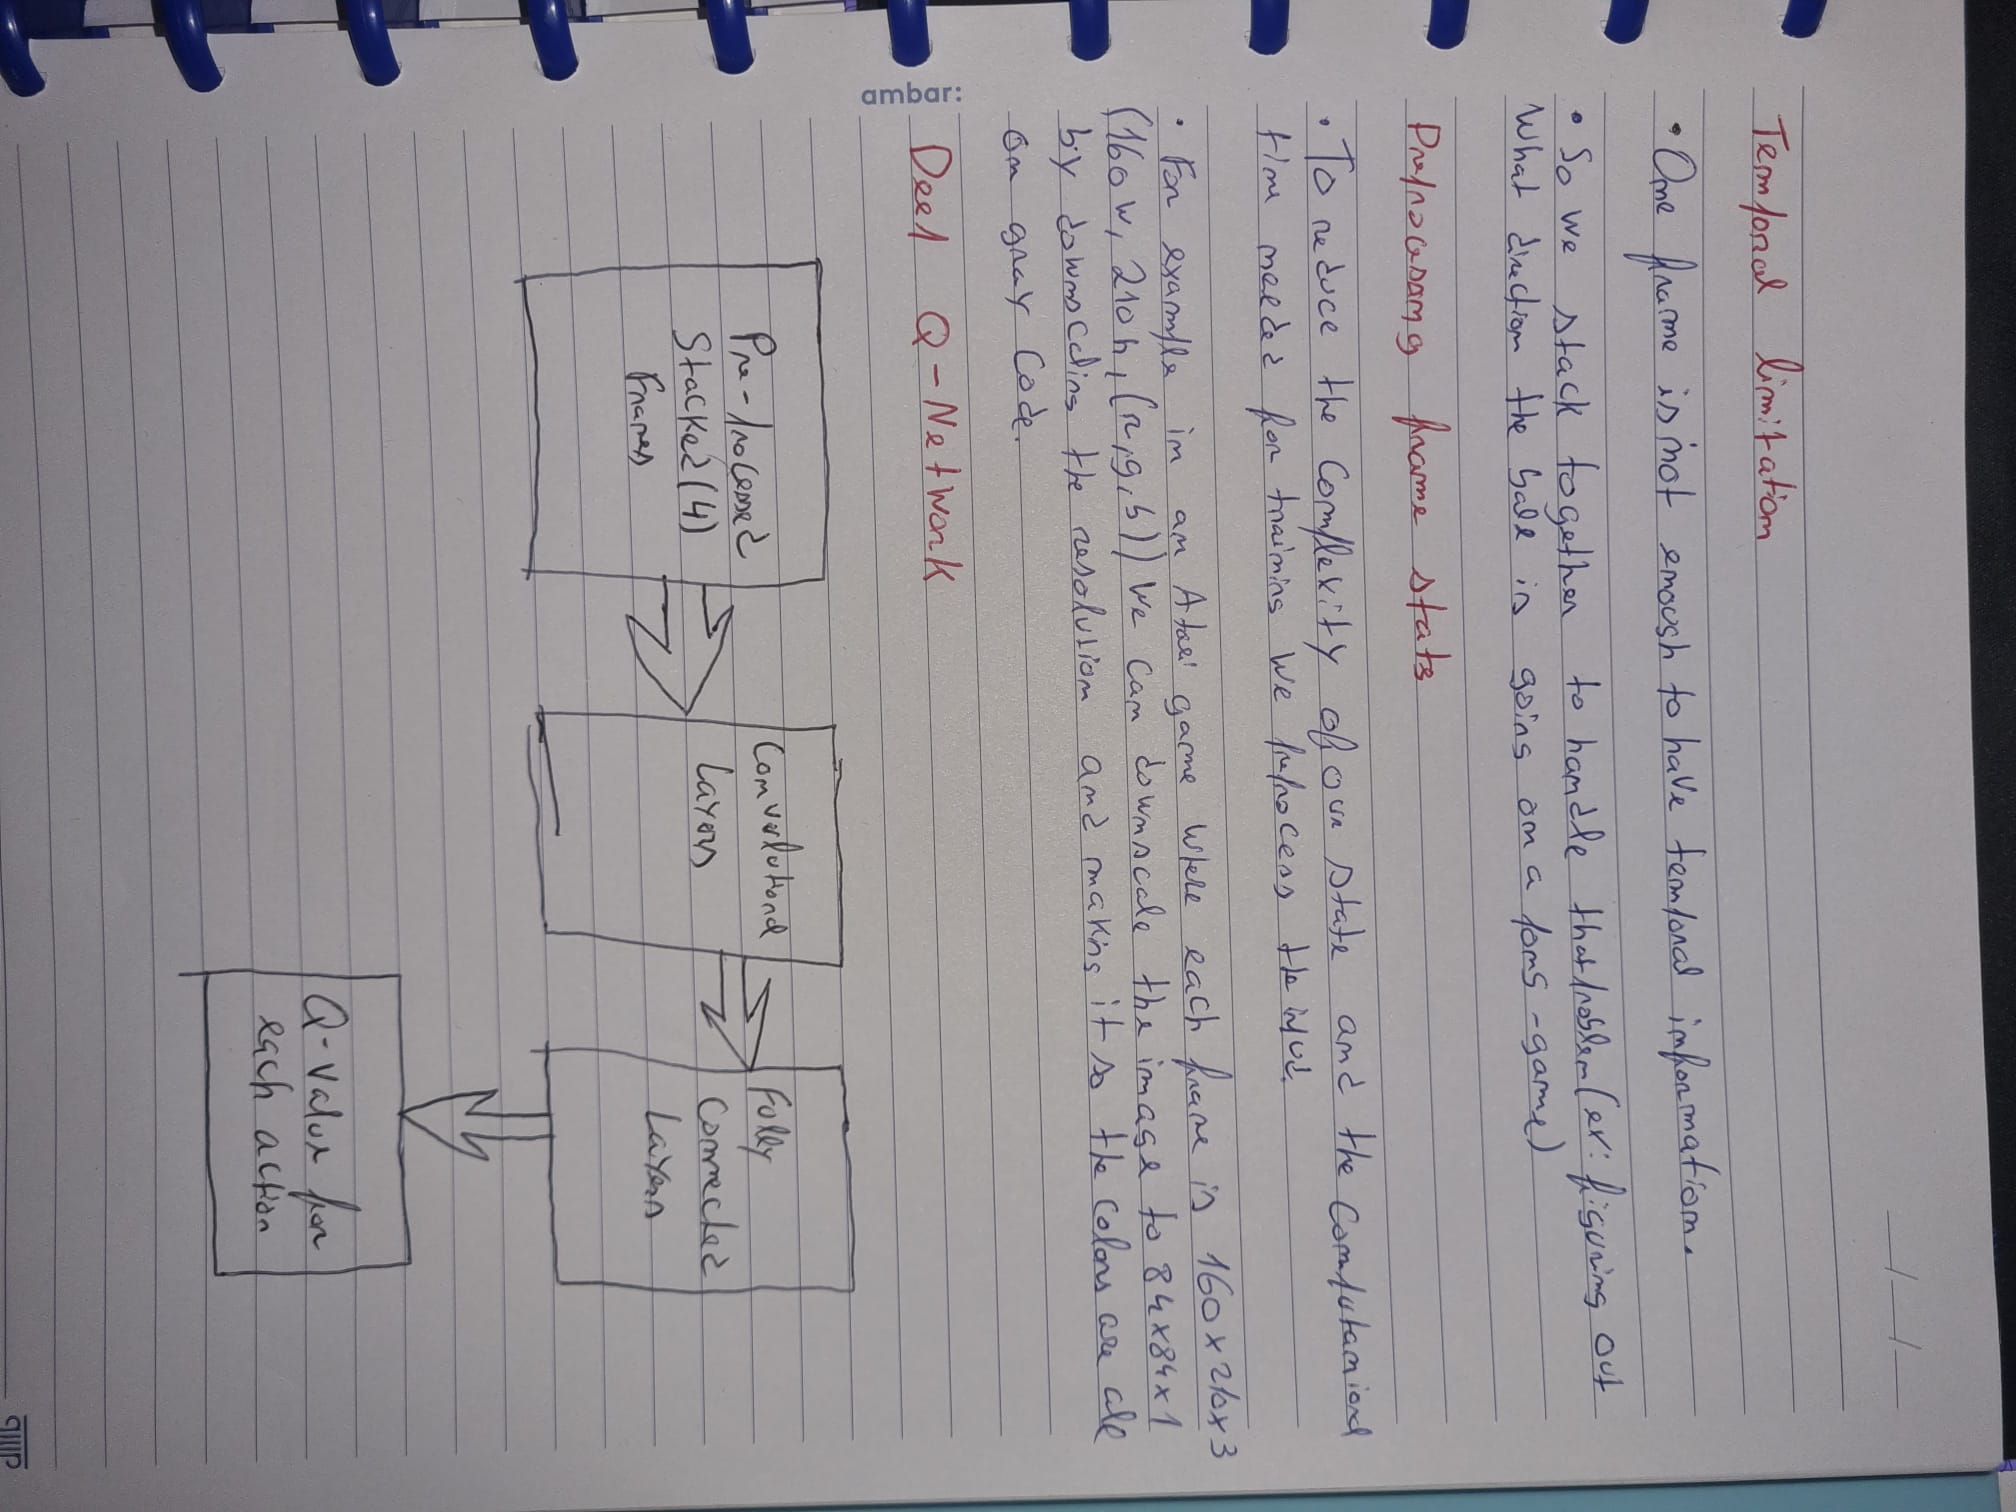 Temporal limitation
• One frame is not enough to have temporal information.
• So we stack together to handle that problem (ex: figuring out
What direction the ball is going on a pong-game)
Preprocessing frame stats
• To reduce the complexity of our state and the computanional
time needed for training we preprocess the input.
• For example in an Atari game where each frame is 160x210x3
(160w, 210h, (r,g,b)) We can downscale the image to 84x84x1
by downscaling the resolution and making it so the colors are all
on gray code.
ambar:
Deep Q-Network
Pre-processed
Stacked(4)
Frames
Convolutional
Layers
Fully
Connected
Layers
Q-value for
each action